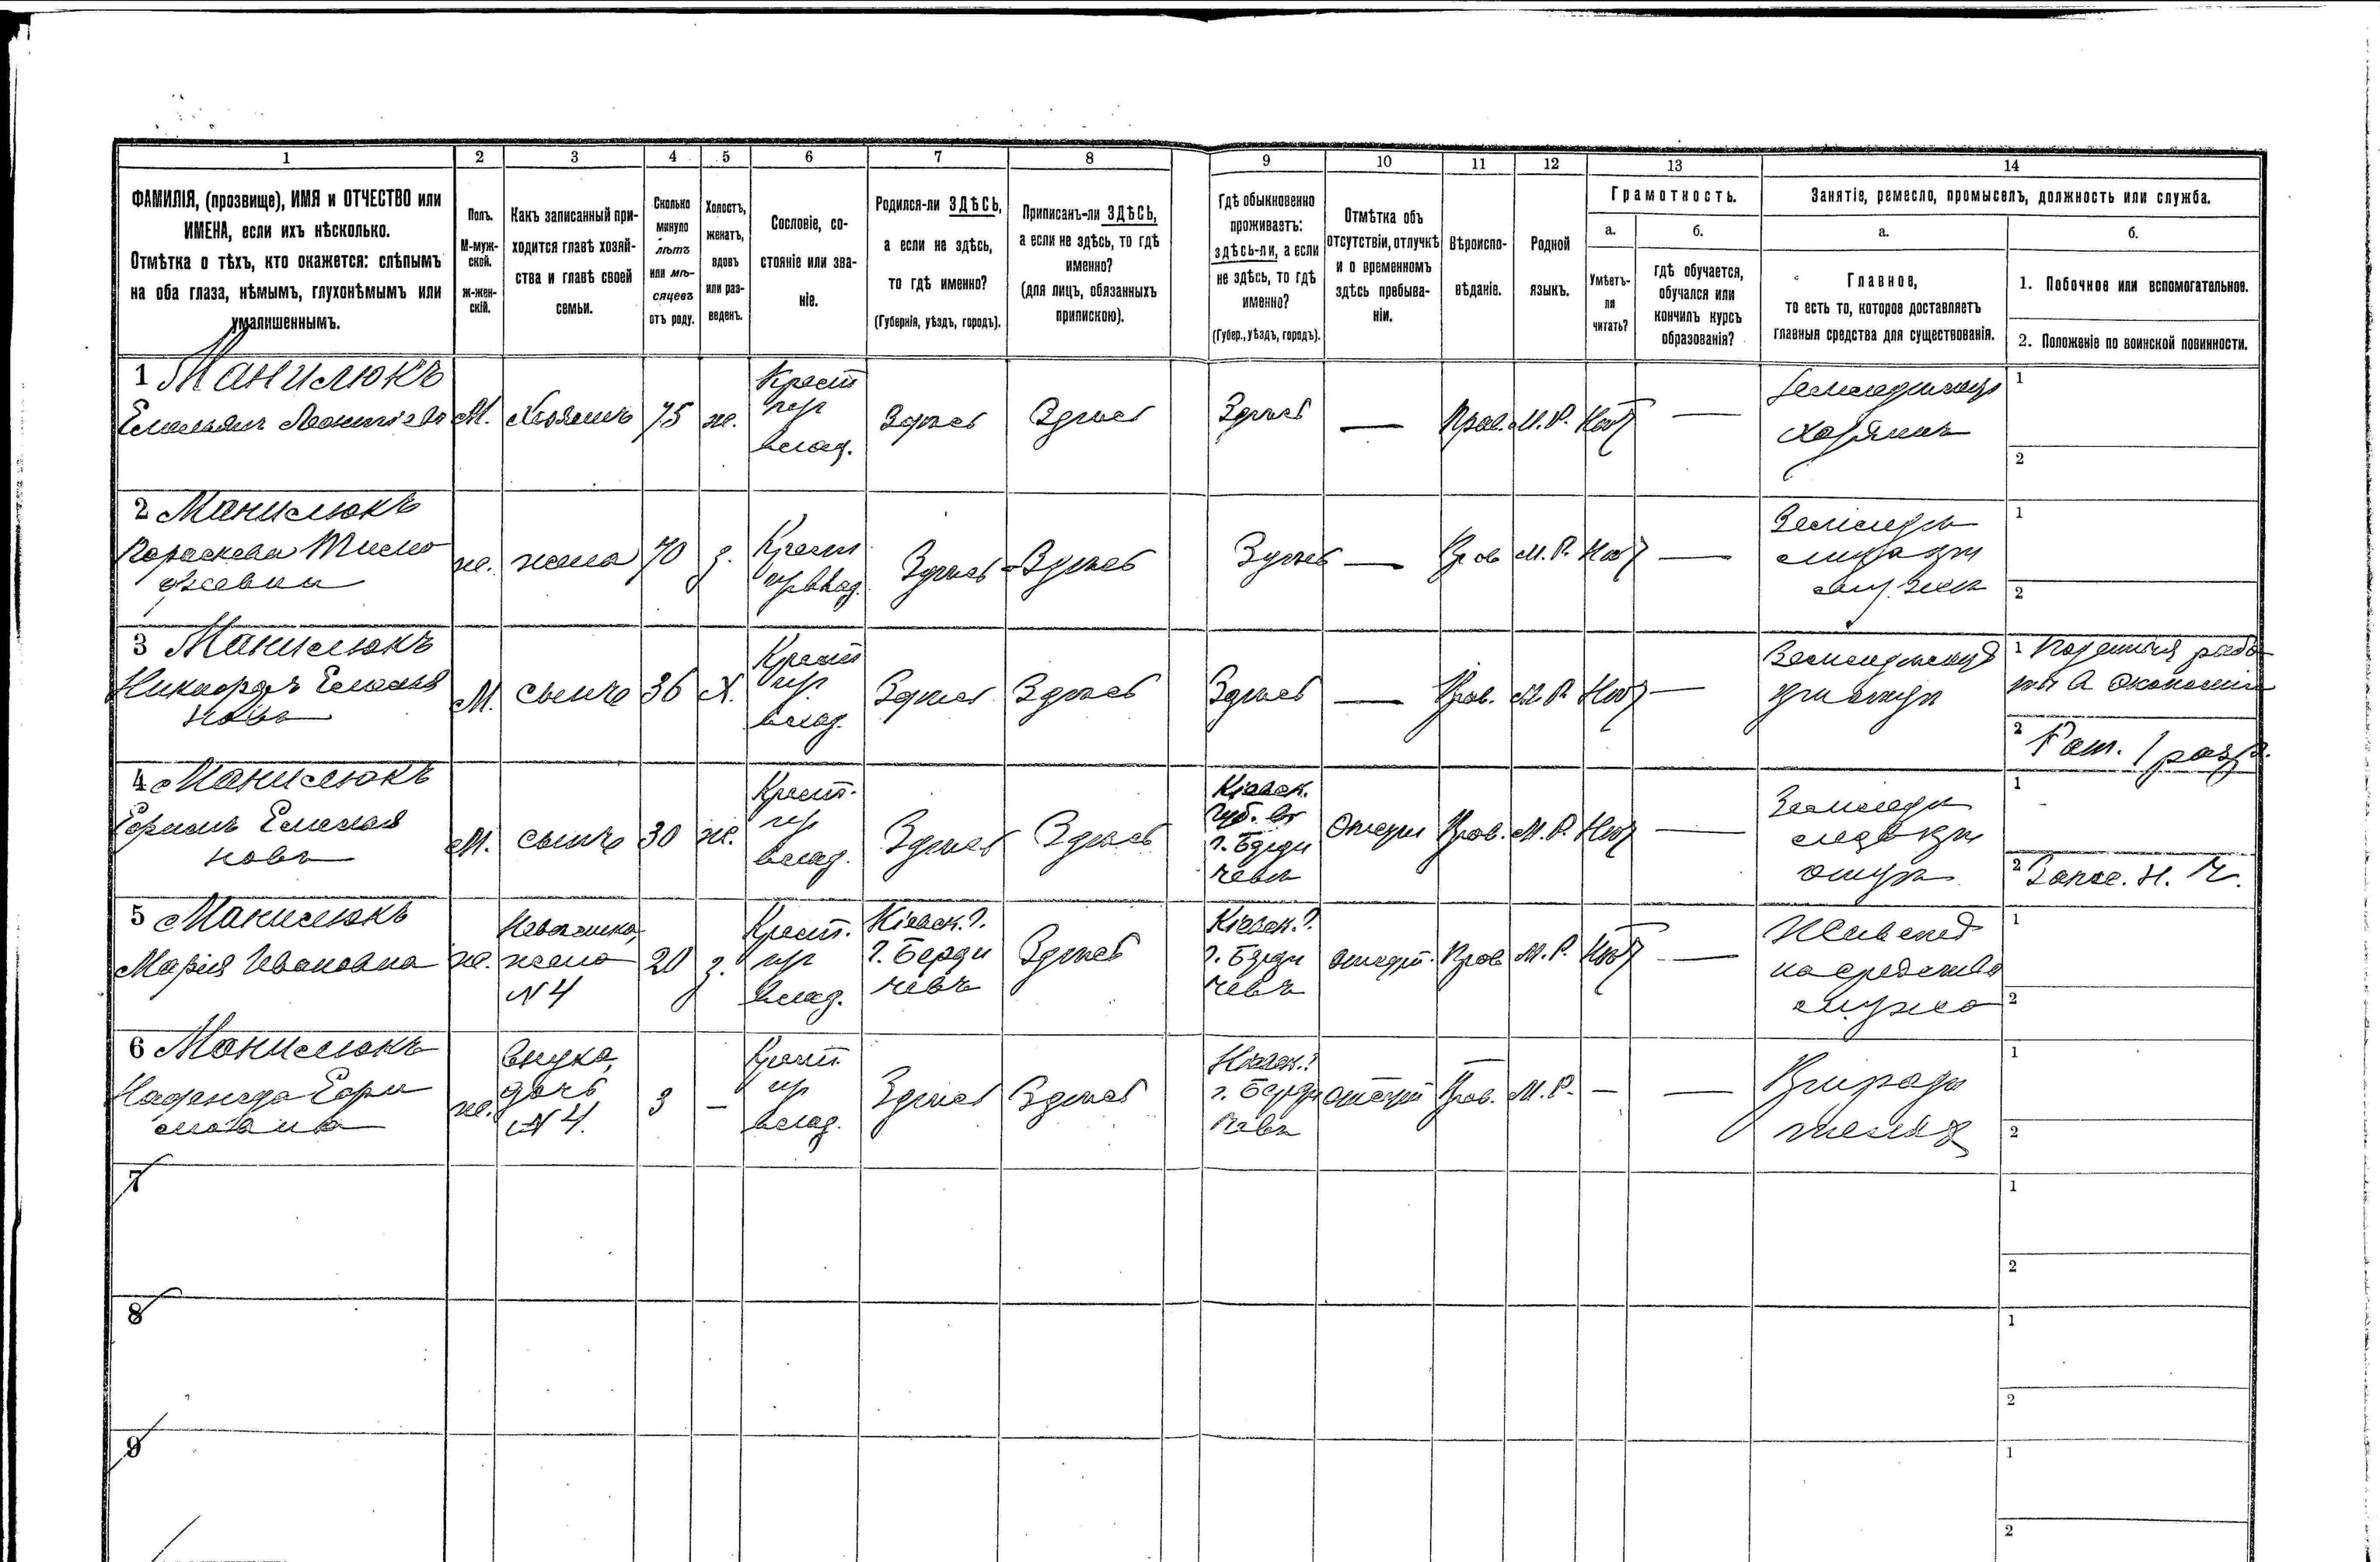 1 2 3 4 5 6 7 8 9 10 11 12 13 14
ФАМИЛІЯ, (прозвище), ИМЯ и ОТЧЕСТВО или
ИМЕНА, если ихъ нѣсколько.
Отмѣтка о тѣхъ, кто окажется: слѣпымъ
на оба глаза, нѣмымъ, глухонѣмымъ или
умалишеннымъ.
Полъ.
М-муж-
ской.
ж-жен-
скій.
Какъ записанный при-
ходится главѣ хозяй-
ства и главѣ своей
семьи.
Сколько
минуло
лѣтъ
или мѣ-
сяцевъ
отъ роду.
Холостъ,
женатъ,
вдовъ
или раз-
веденъ.
Сословіе, со-
стояніе или зва-
ніе.
Родился-ли ЗДѢСЬ,
а если не здѣсь,
то гдѣ именно?
(Губернія, уѣздъ, городъ).
Приписанъ-ли ЗДѢСЬ,
а если не здѣсь, то гдѣ
именно?
(для лицъ, обязанныхъ
припискою).
Гдѣ обыкновенно
проживаетъ:
здѣсь-ли, а если
не здѣсь, то гдѣ
именно?
(Губер., уѣздъ, городъ).
Отмѣтка объ
отсутствіи, отлучкѣ
и о временномъ
здѣсь пребыва-
ніи.
Вѣроиспо-
вѣданіе.
Родной
языкъ.
Грамотность.
а.
Умѣетъ-
ли
читать?
б.
гдѣ обучается,
обучался или
кончилъ курсъ
образованія?
Занятіе, ремесло, промыселъ, должность или служба.
а.
Главное,
то есть то, которое доставляетъ
главныя средства для существованія.
б.
1. Побочное или вспомогательное.
2. Положеніе по воинской повинности.
1 Манилюкъ
Емельянъ
М.
Хозяинъ
75
ж.
Крест
пр
влад.
Здѣсь
Здѣсь
Здѣсь
—
Прав.
М. Р.
Нѣтъ
—
Хозяинъ
1
2
2 Манилюкъ
Параскева Тимо
феевна
ж.
жена
70
з.
Крест
пр влад.
Здѣсь
Здѣсь
Здѣсь
—
Прав
М. Р.
Нѣтъ
—
1
2
3 Манилюкъ
Никифоръ Емелья
новъ
М.
сынъ
36
Х.
Крест
пр
влад.
Здѣсь
Здѣсь
Здѣсь
—
Прав.
М. Р.
Нѣтъ
—
при отцѣ
1 Поденныя рабо
ты в экономіи
2 Рат. 1 разр.
4 Манилюкъ
Ефимъ Емелья
новъ
М.
сынъ
30
ж.
Крест.
пр
влад.
Здѣсь
Здѣсь
Кіевск.
губ. въ
г. Берди
чевѣ
Прав.
М. Р.
Нѣтъ
—
при
отцѣ
1
2 Запас. н. ч.
5 Манилюкъ
Марія Ивановна
ж.
Невѣстка,
жена
№ 4
20
з.
Крест.
пр
влад.
Кіевск. г.
г. Берди
чевъ
Здѣсь
Кіевск. г.
г. Берди
чевъ
Прав
М. Р.
Нѣтъ
—
Живетъ
на средства
мужа
1
2
6 Манилюкъ
Надежда Ефи
мовна
ж.
внука,
дочь
№ 4.
3
—
Крест.
пр
влад.
Здѣсь
Здѣсь
Кіевск. г.
г. Берди
чевъ
Прав.
М. Р.
—
—
При роди
теляхъ
1
2
7
1
2
8
1
2
9
1
2